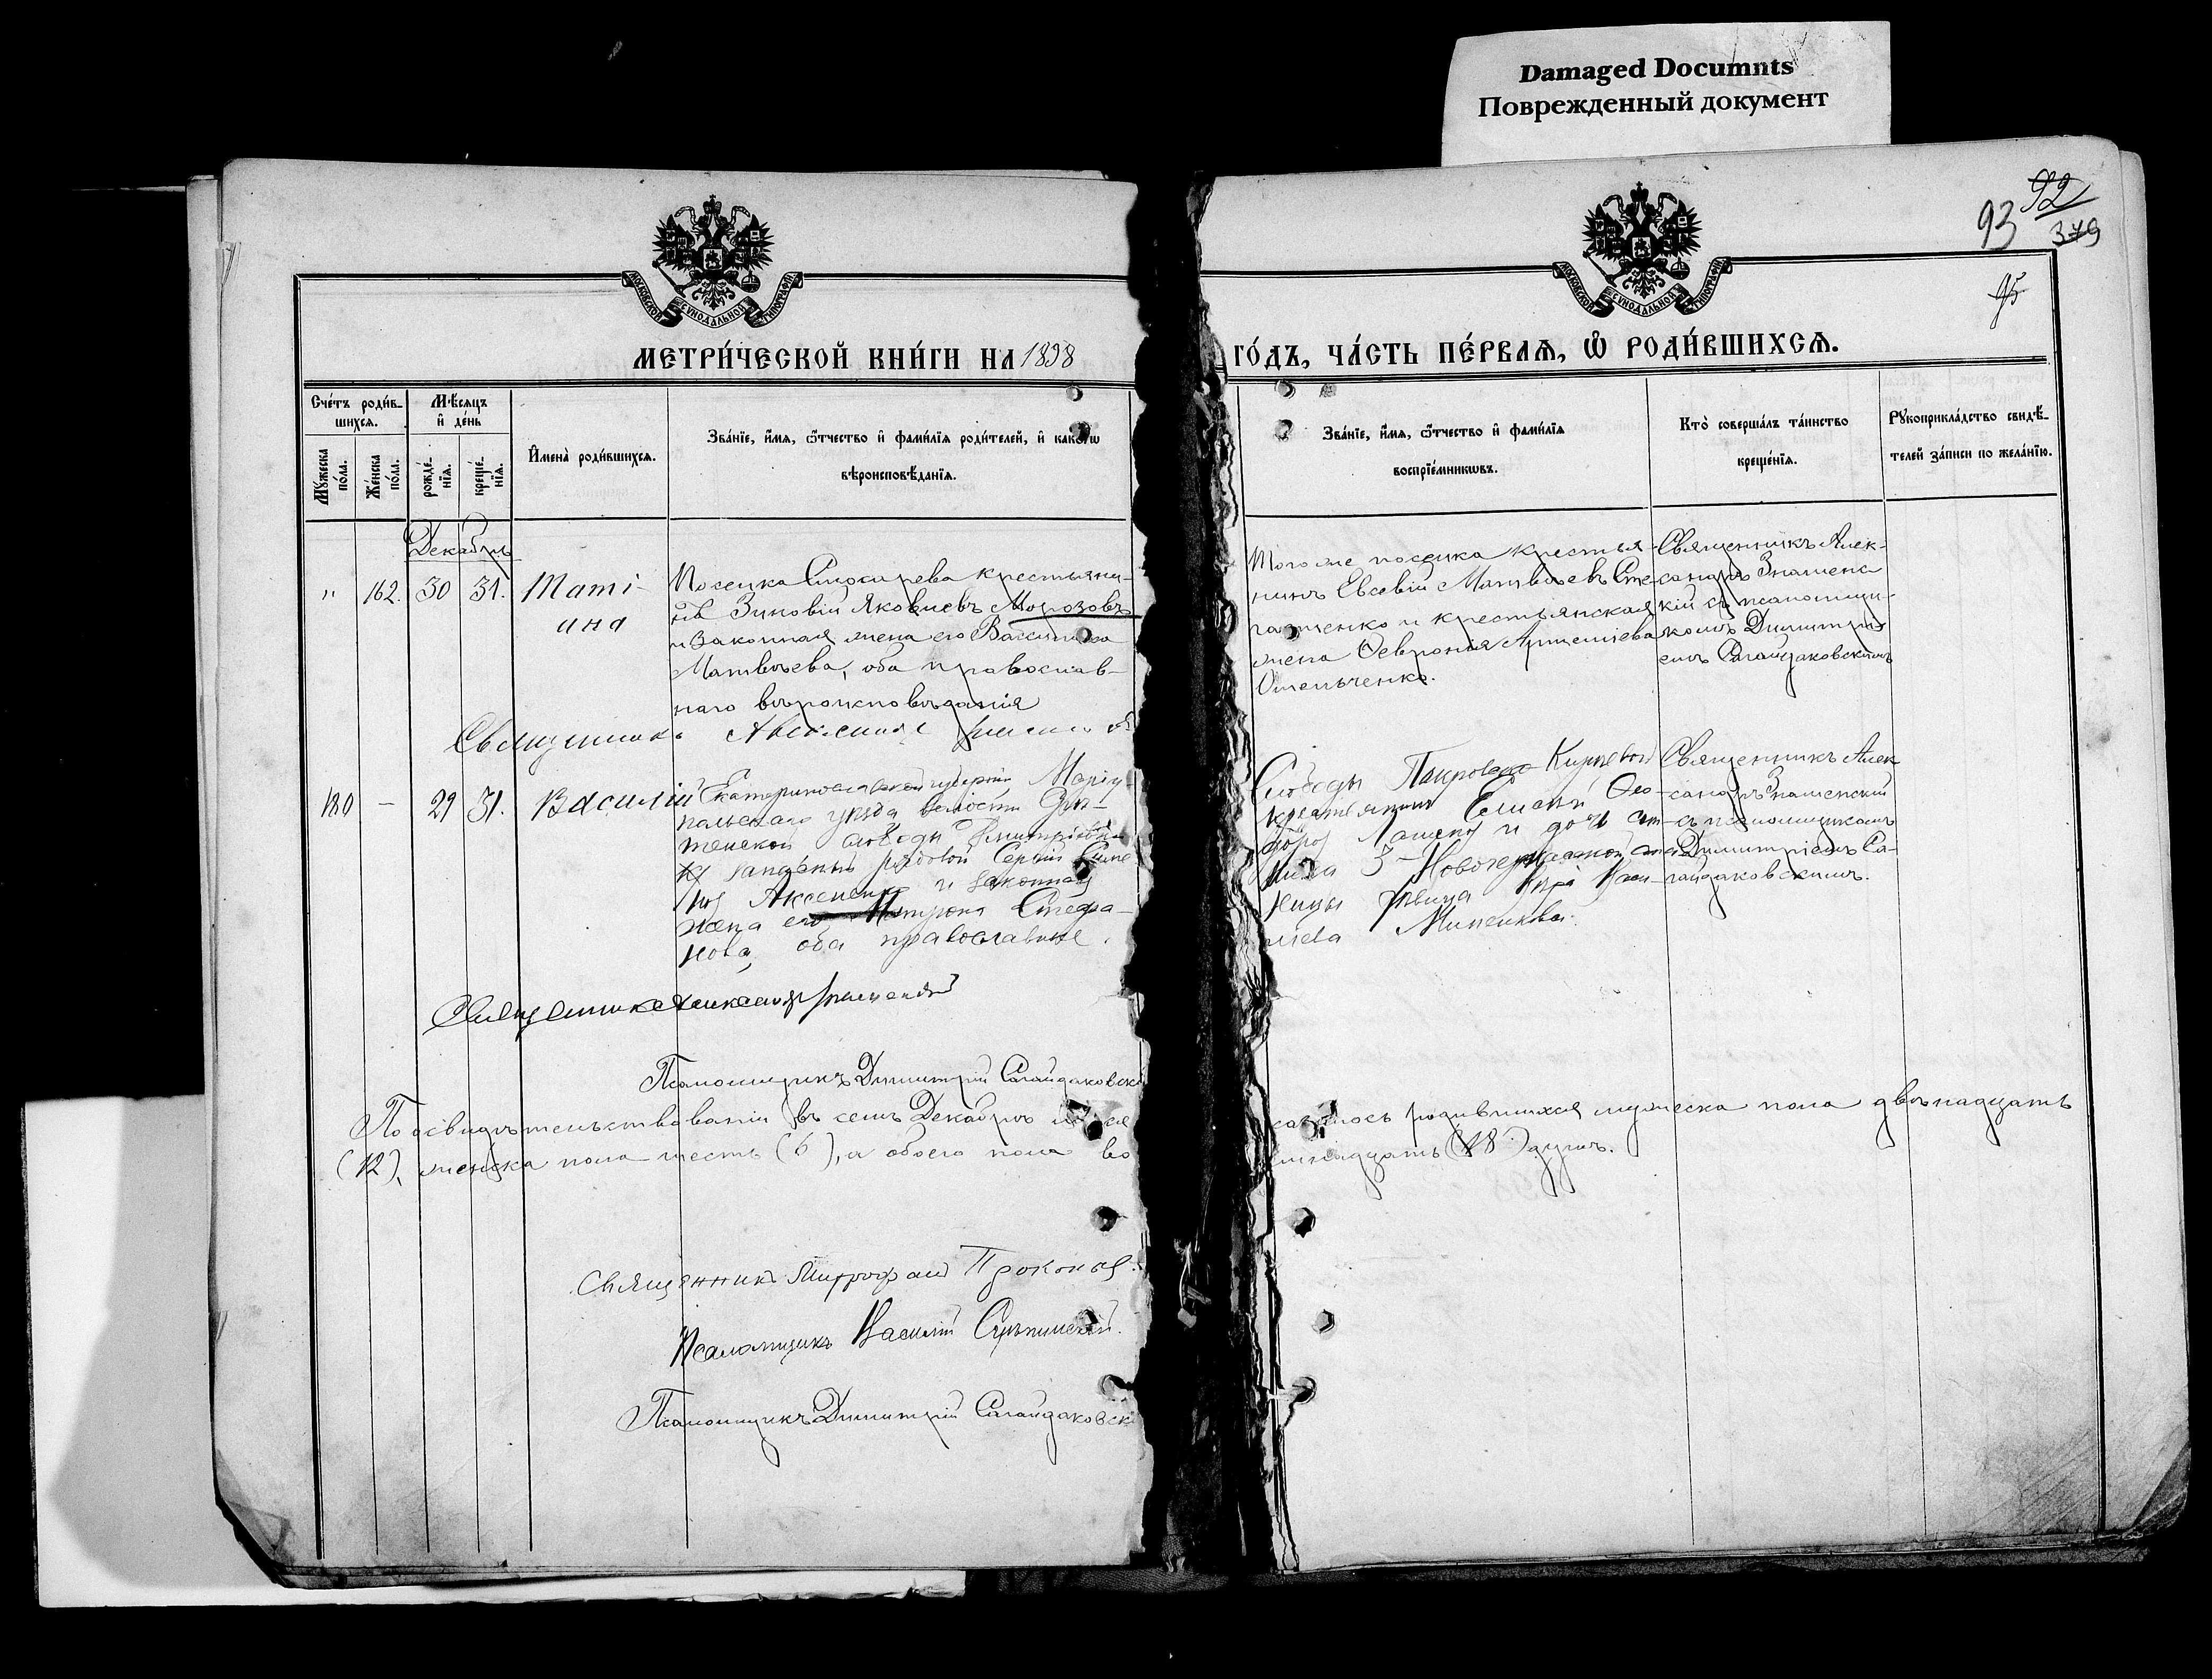 Damaged Documnts
Поврежденный документ
92
93
379
95
МОСКОВСКОЙ СѴНОДАЛЬНОЙ ТИПОГРАФІИ
МОСКОВСКОЙ СѴНОДАЛЬНОЙ ТИПОГРАФІИ
МЕТРИ́ЧЕСКОЙ КНИ́ГИ НА 1898
ГО́ДЪ, ЧА́СТЬ ПЕ́РВАѦ, Ѽ РОДИ́ВШИХСѦ.
Сче́тъ роди́в-
шихсѧ.
Мꙋ́жеска по́ла.
Же́нска по́ла.
Мѣ́сѧцъ
и҆ де́нь
рожде́-
нїѧ.
креще́-
нїѧ.
И҆мена̀ роди́вшихсѧ.
Зва́нїе, и҆́мѧ, ѻ҆́тчество и҆ фами́лїѧ роди́телей, и҆ како́гѡ
вѣроисповѣ́данїѧ.
Зва́нїе, и҆́мѧ, ѻ҆́тчество и҆ фами́лїѧ
воспрїе́мникѡвъ.
Кто̀ соверша́лъ та́инство
креще́нїѧ.
Рꙋкоприкла́дство свидѣ́-
телей за́писи по жела́нїю.
Декабрь
" 162. 30 31. Таті-
ана
Поселка крестьяни-
нъ Зиновій Яковлевъ Морозовъ
и законная жена его Василиса
Матвѣева, оба православ-
наго вѣроисповѣданія
Тогоже поселка крестья-
нинъ Евсевій Матвѣевъ Сте-
и крестьянская
жена Февронія Артеміева
Омельченко.
Священникъ Алек-
сандръ Знаменс-
кій съ псаломщи-
комъ Димитрі-
емъ Сагайдаковскимъ
Священникъ Александръ
180 — 29 31. Василій
Екатеринославской губерніи, Маріу-
польскаго уѣзда волости
слободы
запасный рядовой Сергій Симе-
Аксененко и законная
жена его Матрона Стефа-
нова, оба православные.
Слободы Покровско-Кирѣевой
крестьянинъ Елисей Ѳео-
и дочь
Новочеркасской
девица Кира
Минейкова.
Священникъ Алек-
сандръ Знаменский
съ псаломщикомъ
Димитріемъ Са-
гайдаковскимъ.
Священникъ Александръ Знаменскій
Псаломщикъ Димитрій Сагайдаковск
По освидѣтельствованіи въ семъ Декабрѣ родившихся мужеска пола двѣнадцать
(12), женска пола шесть (6), а обоего пола во семнадцать (18) душъ.
Священникъ Митрофан Прокопьев
Псаломщикъ Василій
Псаломщикъ Димитрій Сагайдаковск